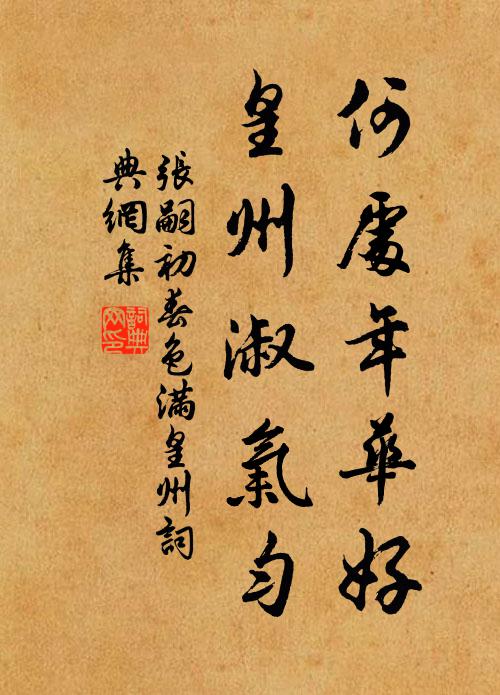 何處年華好
皇州淑氣勻
張嗣初春色滿皇州詞
典網集
詞典網印